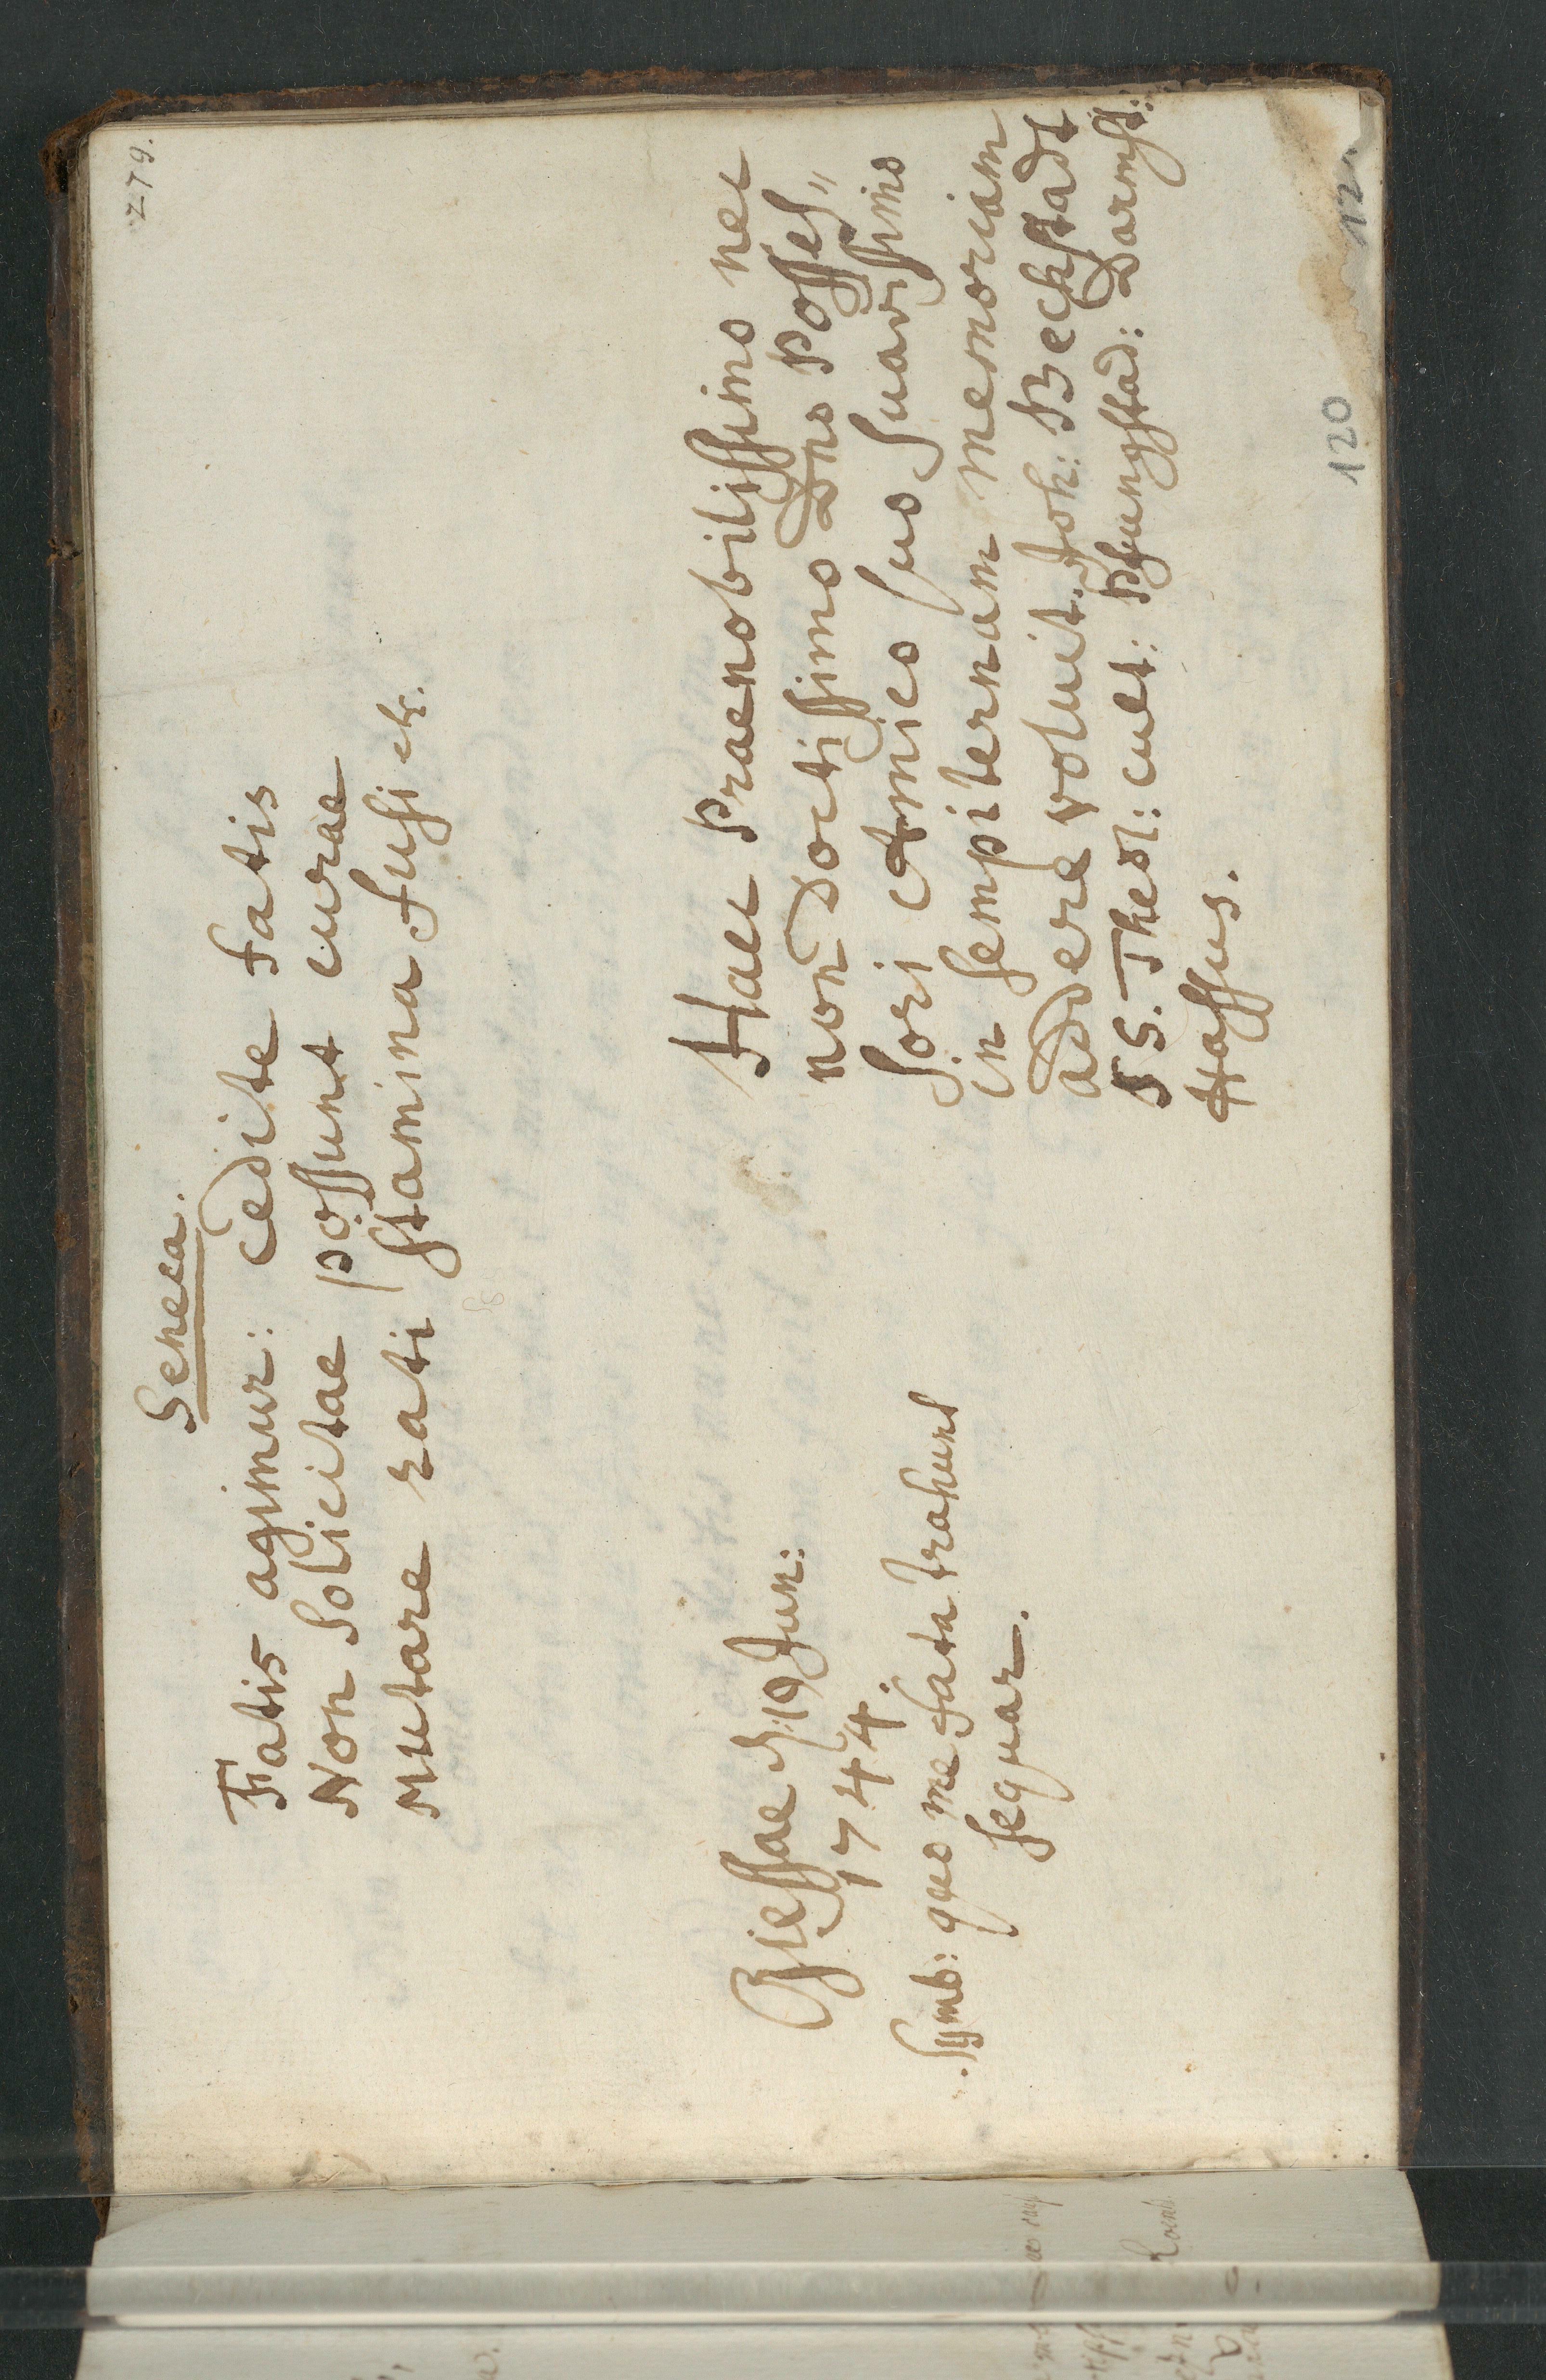 279.
Seneca.
Fatis agimur: cedite fatis
Non Solicitae possunt curae
Mutare rati stamina fusi etc.
Haec Praenobilissimo nec
non Doctissimo Dno Posses=
sori Amico suo Suavissimo
in sempiternam memoriam
addere voluit. Joh: Beckstadt
SS. Theol: cult: Pfungstad: Darmst:
Hassus.
Giessae d. 19 Jun:
1744.
Symb: quo me fata trahunt
sequar.
120